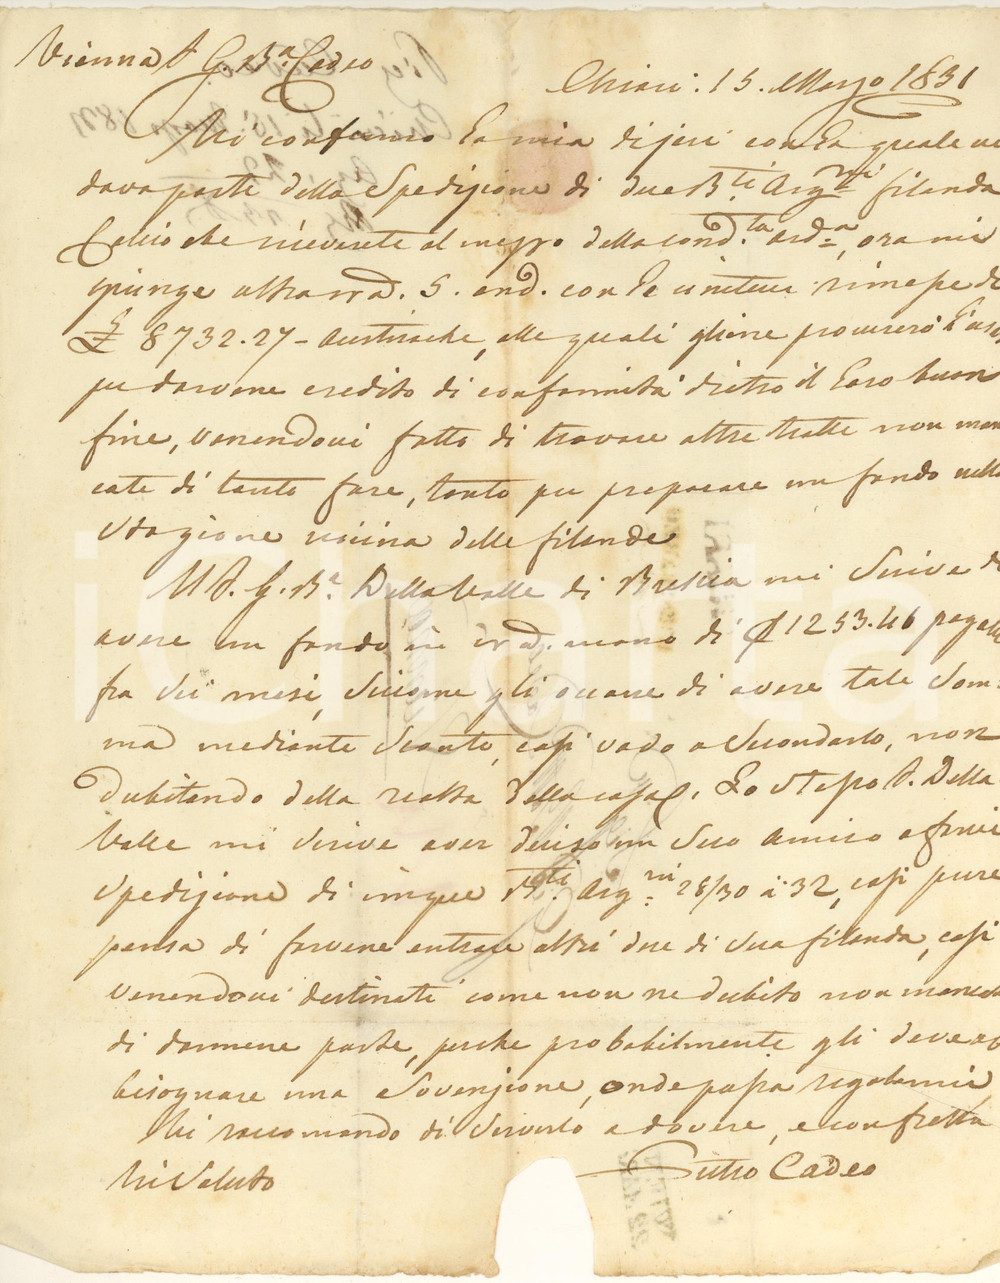 Vienna S. G. Ba. Cadeo
Chiari: 15. Marzo 1831
Mi confermo la mia di jeri con la quale ve
dava parte della Spedizione di due B.ti Arg.ni filanda
Celio che riceverete al mezzo della cond.ta ord.a, ora mi
giunge altra vrа. 5. and. con le unitevi rimesse di
£ 8732.27 - Austriache, alle quali gliene procurerò l'ac
per darvene credito di conformità dietro il loro buon
fine, venendovi fatto di trovare altre tratte non man
cate di tanto fare, tanto per preparare un fondo nella
Stagione vicina delle filande
Il S. G. Ba. Dellavalle di Brescia mi Scrive di
avere un fondo in mano di £ 1253.46 pagab
fra Sei mesi, Siccome gli occorre di avere tale Som=
ma mediante Sconto, così vado a Secondarlo, non
dubitando della realtà della cosa. Lo stesso S. Della
Valle mi Scrive aver deciso un Suo Amico a farvi
Spedizione di cinque B.ti Arg.ni 28/30 a 32, così pure
pensa di farvene entrare altri due di Sua filanda, così
venendovi destinati come non ne dubito non mancate
di darmene parte, perche probabilmente gli dovrà
bisognare una Sovenzione, onde possa regolarmi
Mi raccomando di Servirlo a dovere, e con fretta
Mi Saluto
Pietro Cadeo
iCharta